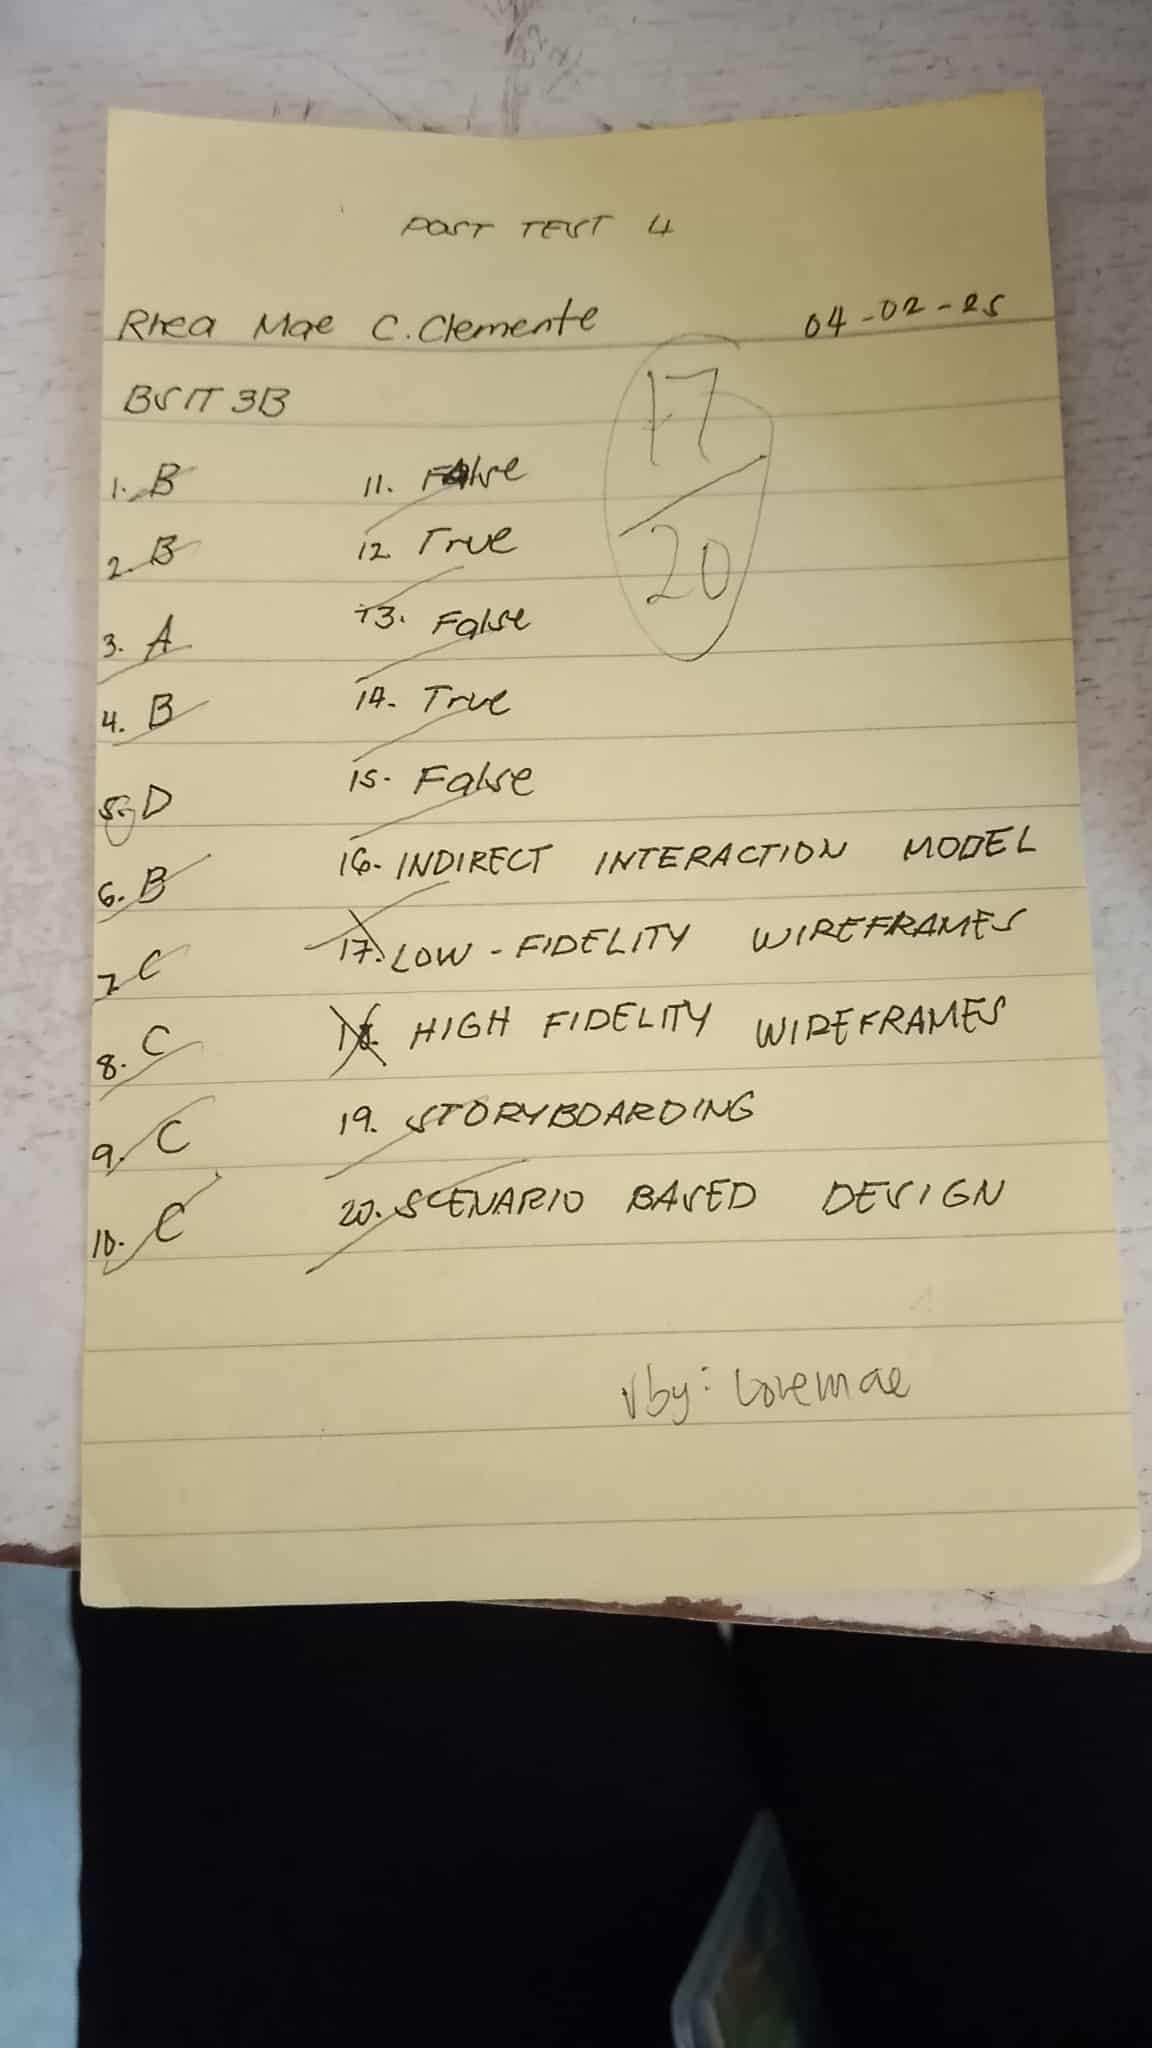 POST TEST 4
Rhea Mae C. Clemente 04-02-25
BSIT 3B
17
20
1. B
2. B
3. A
4. B
5. D
6. B
7. C
8. C
9. C
10. C
11. False
12. True
13. False
14. True
15. False
16. INDIRECT INTERACTION MODEL
17. LOW-FIDELITY WIREFRAMES
18. HIGH FIDELITY WIREFRAMES
19. STORYBOARDING
20. SCENARIO BASED DESIGN
√by: Lovemae